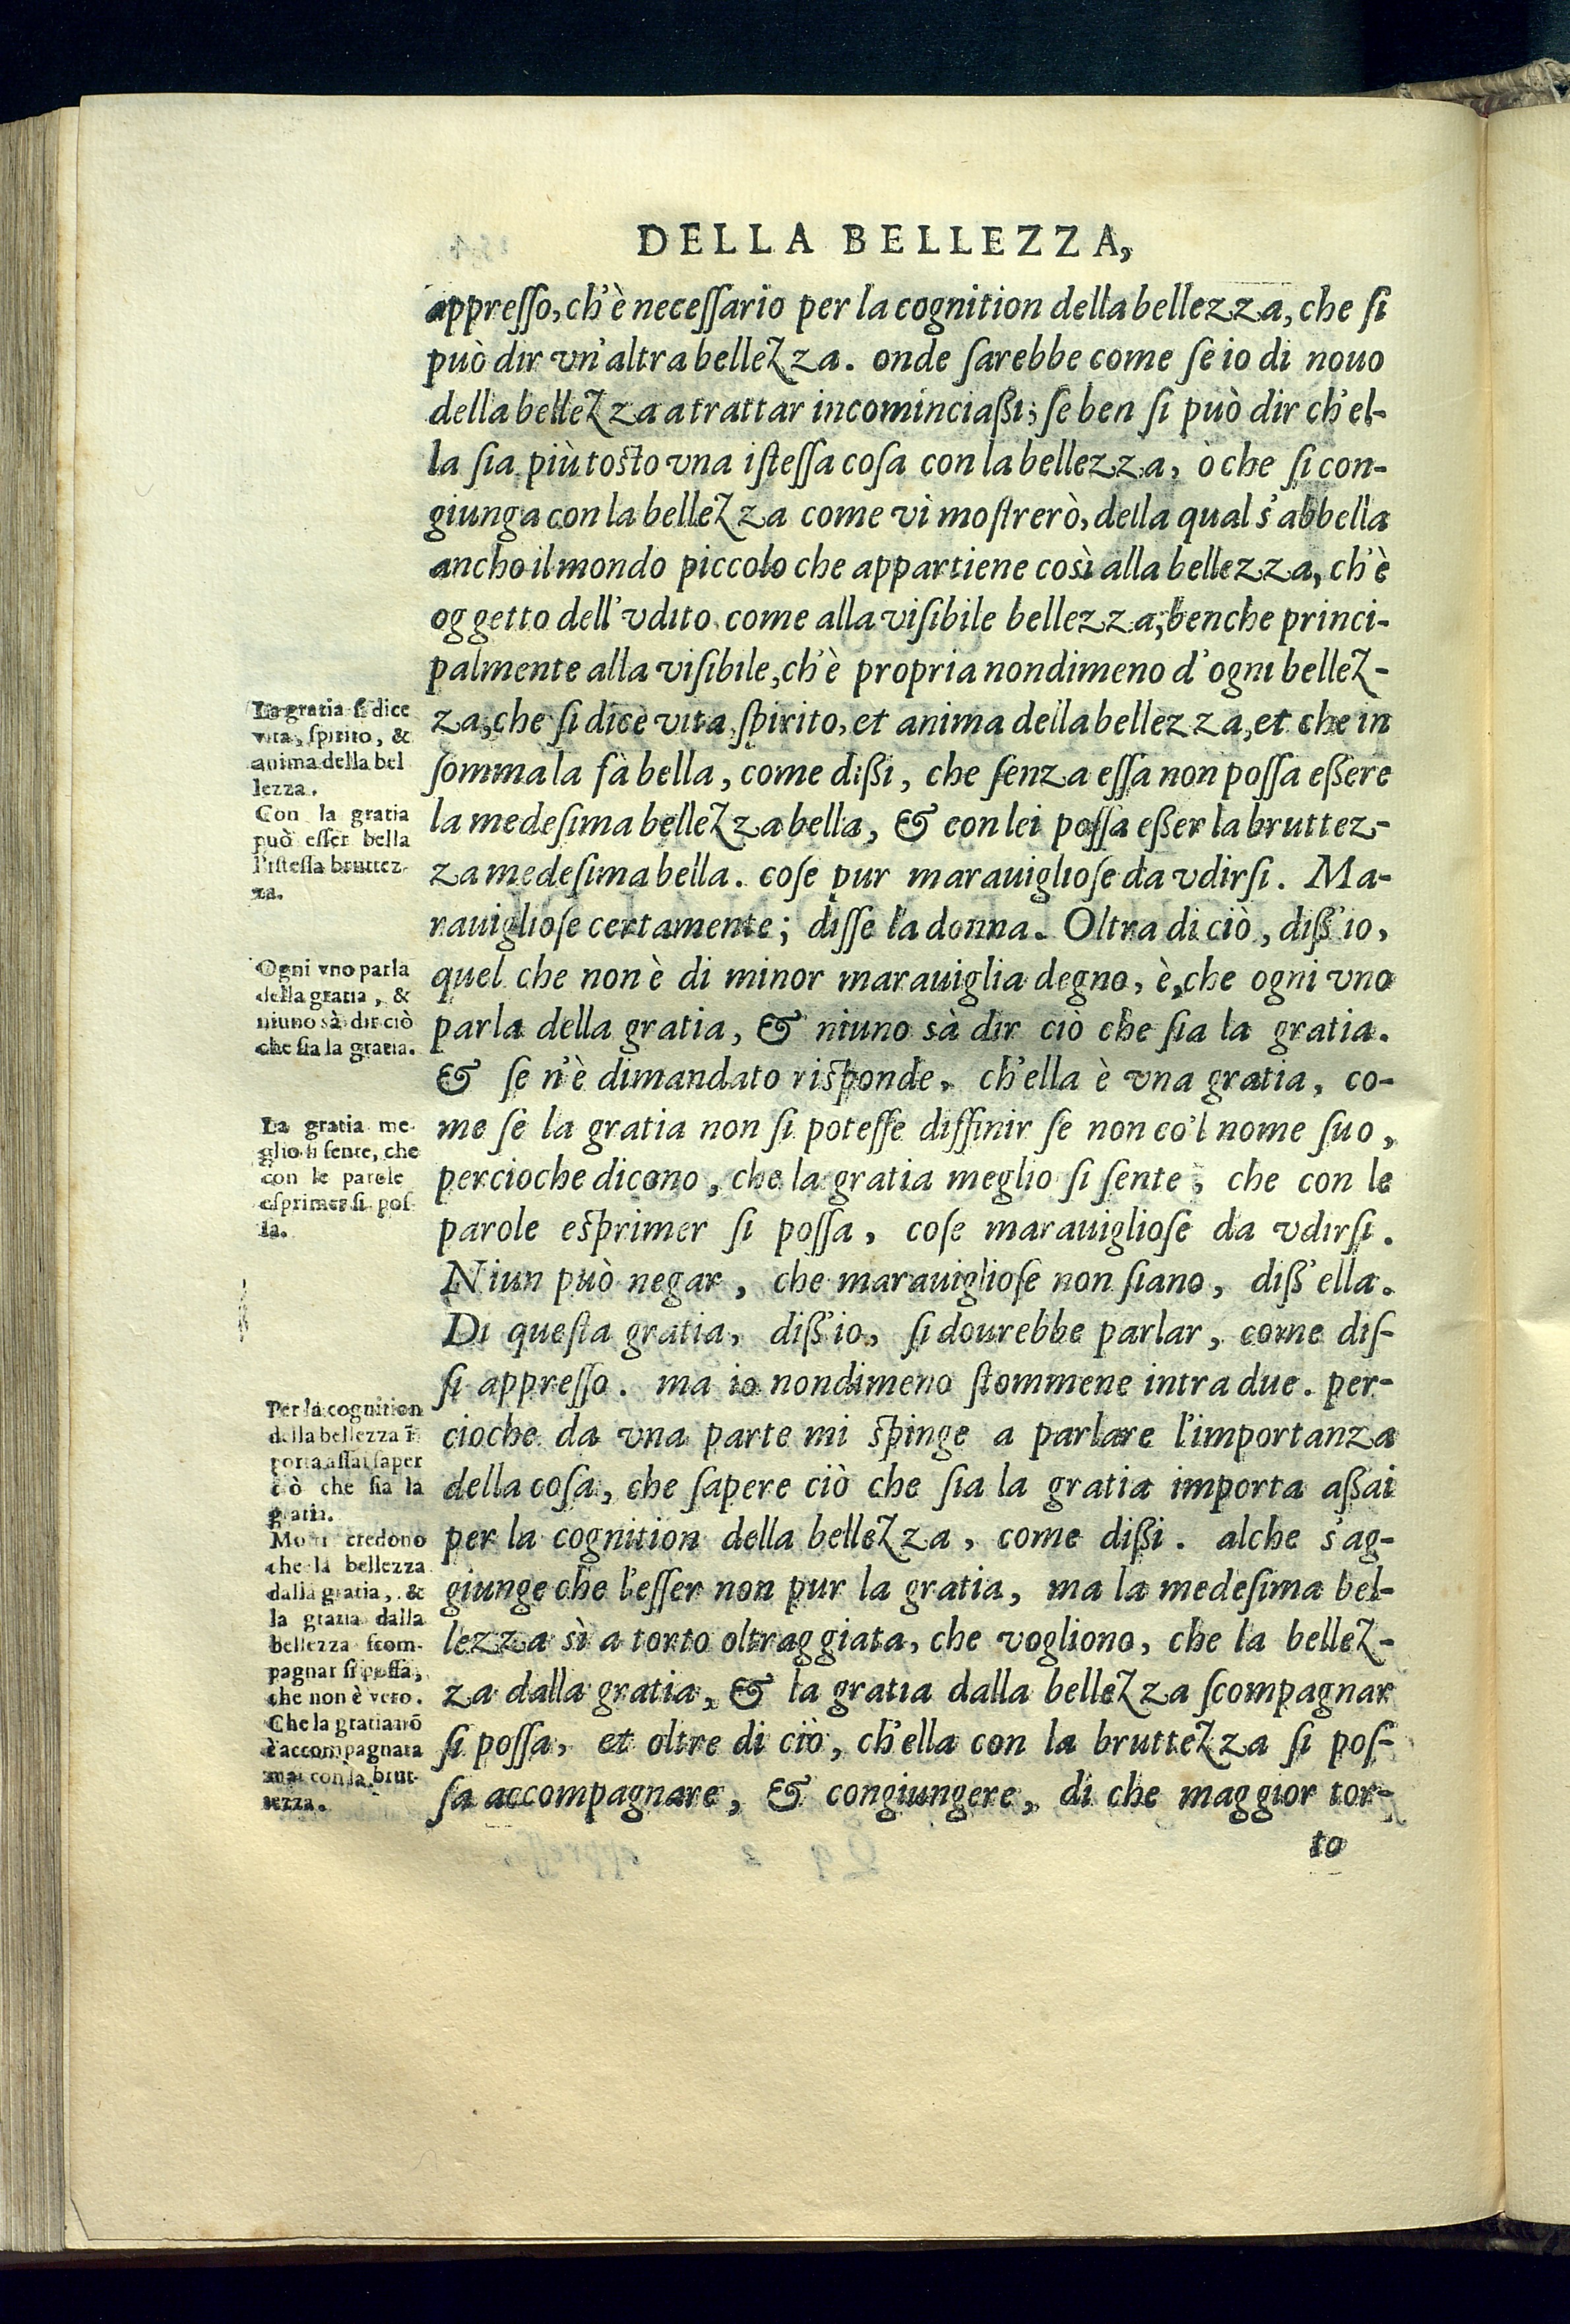 DELLA BELLEZZA,
appreſſo, ch'è neceſſario per la cognition della bellezza, che ſi
può dir vn'altra bellezza. onde ſarebbe come ſe io di nouo
della bellezza a trattar incominciaßi; ſe ben ſi può dir ch'el-
la ſia più toſto vna iſteſſa coſa con la bellezza, ò che ſi con-
giunga con la bellezza come vi moſtrerò, della qual s'abbella
ancho il mondo piccolo che appartiene così alla bellezza, ch'è
oggetto dell'vdito come alla viſibile bellezza; benche princi-
palmente alla viſibile, ch'è propria nondimeno d'ogni bellez-
za, che ſi dice vita, ſpirito, et anima della bellezza, et che in
ſomma la fà bella, come dißi, che ſenza eſſa non poſſa eßere
la medeſima bellezza bella, & con lei poſſa eßer la bruttez-
za medeſima bella. coſe pur marauiglioſe da vdirſi. Ma-
rauiglioſe certamente; diſſe la donna. Oltra di ciò, diß'io,
quel che non è di minor marauiglia degno, è, che ogni vno
parla della gratia, & niuno sà dir ciò che ſia la gratia.
& ſe n'è dimandato riſponde, ch'ella è vna gratia, co-
me ſe la gratia non ſi poteſſe diffinir ſe non co'l nome ſuo,
percioche dicono, che la gratia meglio ſi ſente, che con le
parole eſprimer ſi poſſa, coſe marauiglioſe da vdirſi.
Niun può negar, che marauiglioſe non ſiano, diß'ella.
Di queſta gratia, diß'io, ſi dourebbe parlar, come diſ-
ſi appreſſo. ma io nondimeno ſtommene intra due. per-
cioche da vna parte mi ſpinge a parlare l'importanza
della coſa, che ſapere ciò che ſia la gratia importa aßai
per la cognition della bellezza, come dißi. alche s'ag-
giunge che l'eſſer non pur la gratia, ma la medeſima bel-
lezza sì a torto oltraggiata, che vogliono, che la bellez-
za dalla gratia, & la gratia dalla bellezza ſcompagnar
ſi poſſa, et oltre di ciò, ch'ella con la bruttezza ſi poſ-
ſa accompagnare, & congiungere, di che maggior tor-
to
La gratia ſi dice
vita, ſpirito, &
anima della bel
lezza.
Con la gratia
può eſſer bella
l'iſteſſa bruttez-
za.
Ogni vno parla
della gratia, &
niuno sà dir ciò
che ſia la gratia.
La gratia me-
glio ſi ſente, che
con le parole
eſprimer ſi poſ-
ſa.
Per la cognition
della bellezza ĩ
porta aſſai ſaper
ciò che ſia la
gratia.
Molti credono
che la bellezza
dalla gratia, &
la gratia dalla
bellezza ſcom-
pagnar ſi poſſa,
che non è vero.
Che la gratia nõ
è accompagnata
mai con la brut-
tezza.